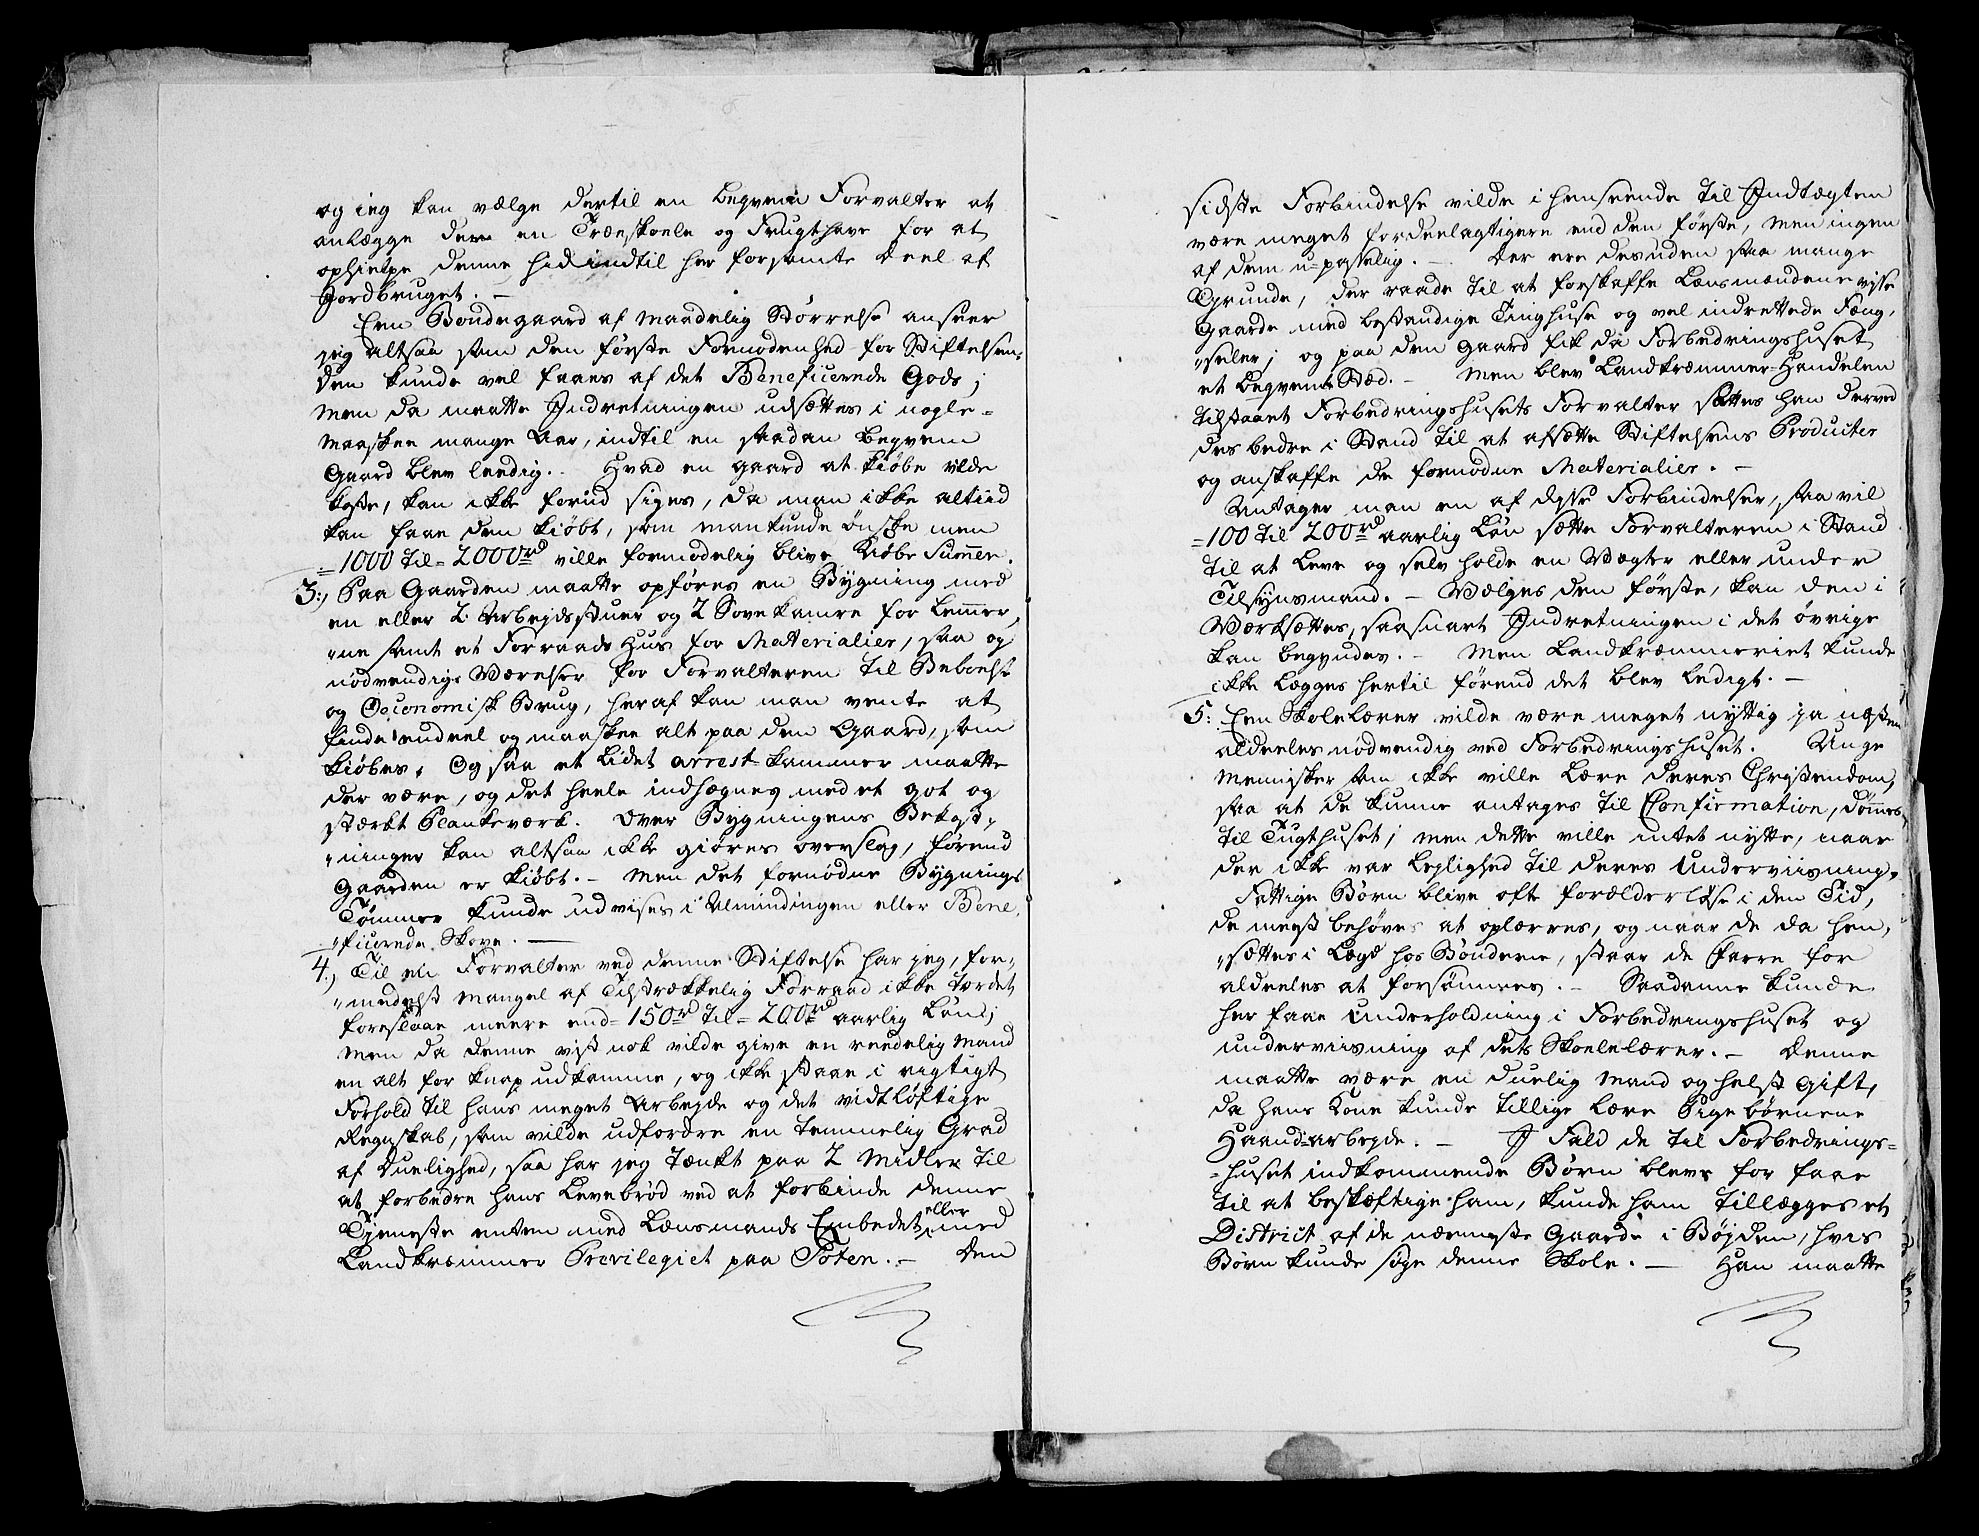 og jeg kan vælge dertil en beqvem Forvalter at
anlægge der en Træeskoele og Frugthave for at
ophielpe denne hidindtil her forsømte Deel af
Jordbruget. –
Een Bondegaard af maadelig Størrelse anseer
jeg altsaa som den første Fornødenhed for Stiftelsen,
den kunde vel faaes af det Beneficerede Gods;
men da maatte Indretningen udsættes i nogle =
maaskee mange Aar, indtil en saadan beqvem
Gaard blev leedig. Hvad en gaard at kiøbe vilde
koste, kan ikke forud siges, da man ikke altiid
kan faae den kiøbt, som man kunde ønske men
= 1000 til = 2000 rd ville formodelig blive Kiøbe Summen.
3:, Paa Gaarden maatte opføres en Bygning med
en eller 2 Arbejdsstuer og 2 Sovekamre for Lemmer,
"ne samt et Forraads Huus for Materialier, saa og
nødvendige Værelser for Forvalteren til Beboelse
og Oeconomisk Brug, heraf kan man vente at
finde endeel og maaskee alt paa den Gaard, som
kiøbes. Ogsaa et Lidet arrest-kammer maatte
der være, og det heele indhægnes med et got og
stærkt Plankeværk. Over Bygningens Bekost,
"ninger kan altsaa ikke giøres overslag, førend
Gaarden er kiøbt. – Men det fornødne Bygnings
Tømmer kunde udvises i Almindingen eller Bene,
"ficerede Skove. –
4., Til en Forvalter ved denne Stiftelse har jeg, for,
"medelst Mangel af Tilstrækkelig Forraad ikke tordet
foreslaae meere end = 150 rd til = 200 rd aarlig Løn;
men da denne vist nok vilde give en reedelig Mand
en alt for knap udkomme, og ikke staae i rigtigt
Forhold til hans meget Arbejde og det vidtløftige
Regnskab, som vilde udfordre en temmelig Grad
af Duelighed, saa har jeg tænkt paa 2 Midler til
at forbedre hans Levebrød ved at forbinde denne
Tjeneste enten med Lænsmands Embedet eller med
Landkræmmer Previlegiet paa Toten. – Den
sidste Forbindelse vilde i henseende til Indtægten
være meget fordeelagtigere end den første, men ingen
af dem u-passelig. – Der ere desuden saa mange
Grunde, der raade til at forskaffe Lænsmændene visse
Gaarde med bestandige Tinghuse og vel indrettede Fæng,
"seler; og paa den Gaard fik da Forbedringshuset
et beqvemt Stæd. – Men blev Landkræmmer-Handelen
tilstaaet Forbedringshusets Forvalter sættes han derved
des bedre i Stand til at afsætte Stiftelsens Producter
og anskaffe de fornødne Materialier. –
Antager man en af disse Forbindelser, saa vil
= 100 til 200 rd aarlig Løn sætte Forvalteren i Stand
til at Leve og selv holde en Vægter eller under
Tilsynsmand. – Vælges den første, kan den i
Værksættes, saasnart Indretningen i det øvrige
kan begyndes. – Men Landkræmmeriet kunde
ikke Lægges hertil førend det blev Ledigt. –
5: Een Skolelærer vilde være meget nyttig ja næsten
aldeeles nødvendig ved Forbedringshuset. Unge
Mennisker som ikke ville Lære deres Christendom,
saa at de kunne antages til Confirmation, dømmes
til Tugthuset; men dette ville intet nytte, naar
der ikke var Lejlighed til deres Underviisning.
Fattige Børn blive ofte forælderløse i den Tid,
de meest behøves at oplærres, og naar de da hen,
"sættes i Lægd hos Bønderne, staar de fare for
aldeeles at forsømmes. – Saadanne kunde
her faae Underholdning i Forbedringshuset og
underviisning af dets Skoelelærer. – Denne
maatte være en duelig Mand og helst Gift,
da hans Kone kunde tillige lære Pigebørnene
Haand-arbejde. – I Fald de til Forbedrings=
=huset indkommende Børn bleve for faae
til at beskæftige ham, kunde ham tillægges et
District af de nærmeste Gaarde i Bøjden, hvis
Børn kunde søge denne Skole. – Han maatte